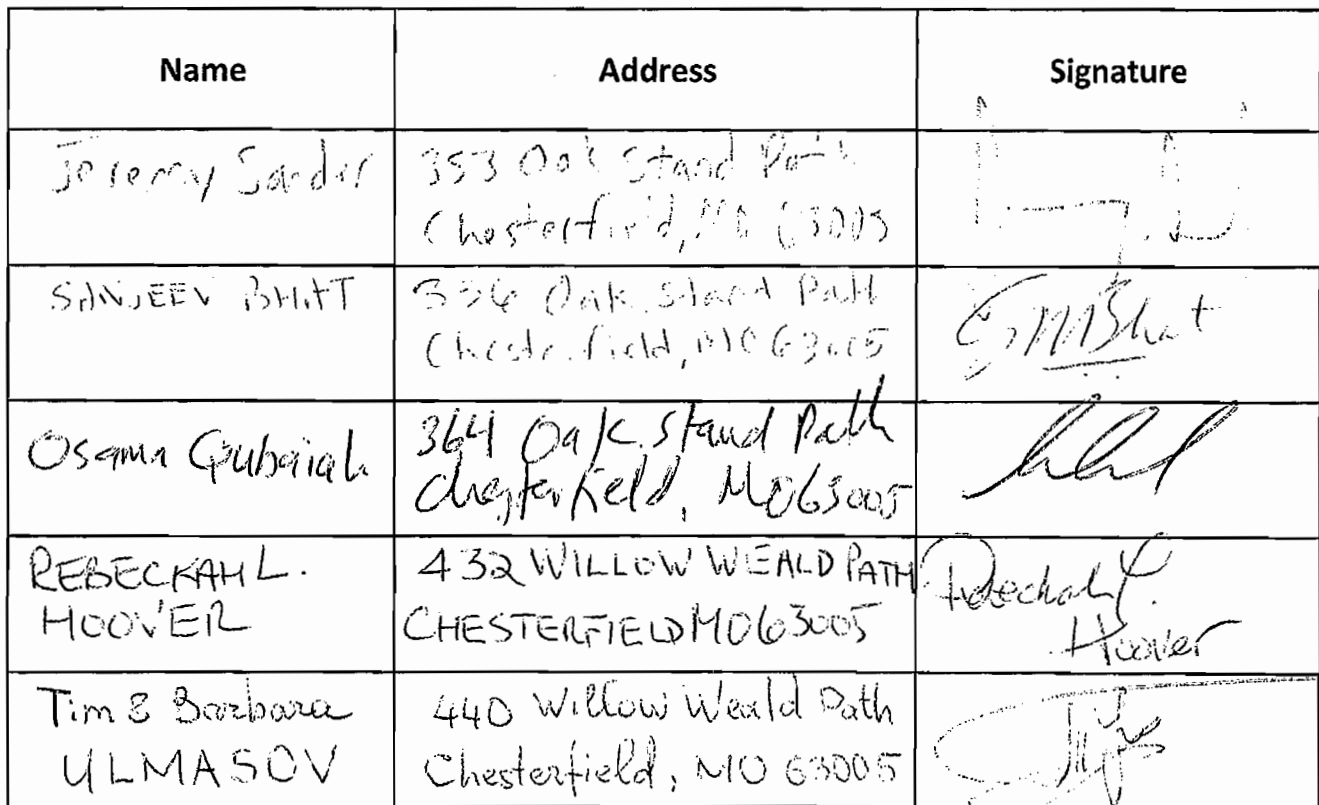 Name Address Signature
Jeremy Sander 353 Oak Stand Path
Chesterfield, MO 63005
SANJEEV BHATT 336 Oak Stand Path
Chesterfield, MO 63005
SMBhatt
Osama Qubaiah 364 Oak Stand Path
Chesterfield, MO 63005
REBECKAH L. 432 WILLOW WEALD PATH Rebeckah L.
HOOVER CHESTERFIELD MO 63005 Hoover
Tim & Barbara 440 Willow Weald Path
ULMASOV Chesterfield, MO 63005